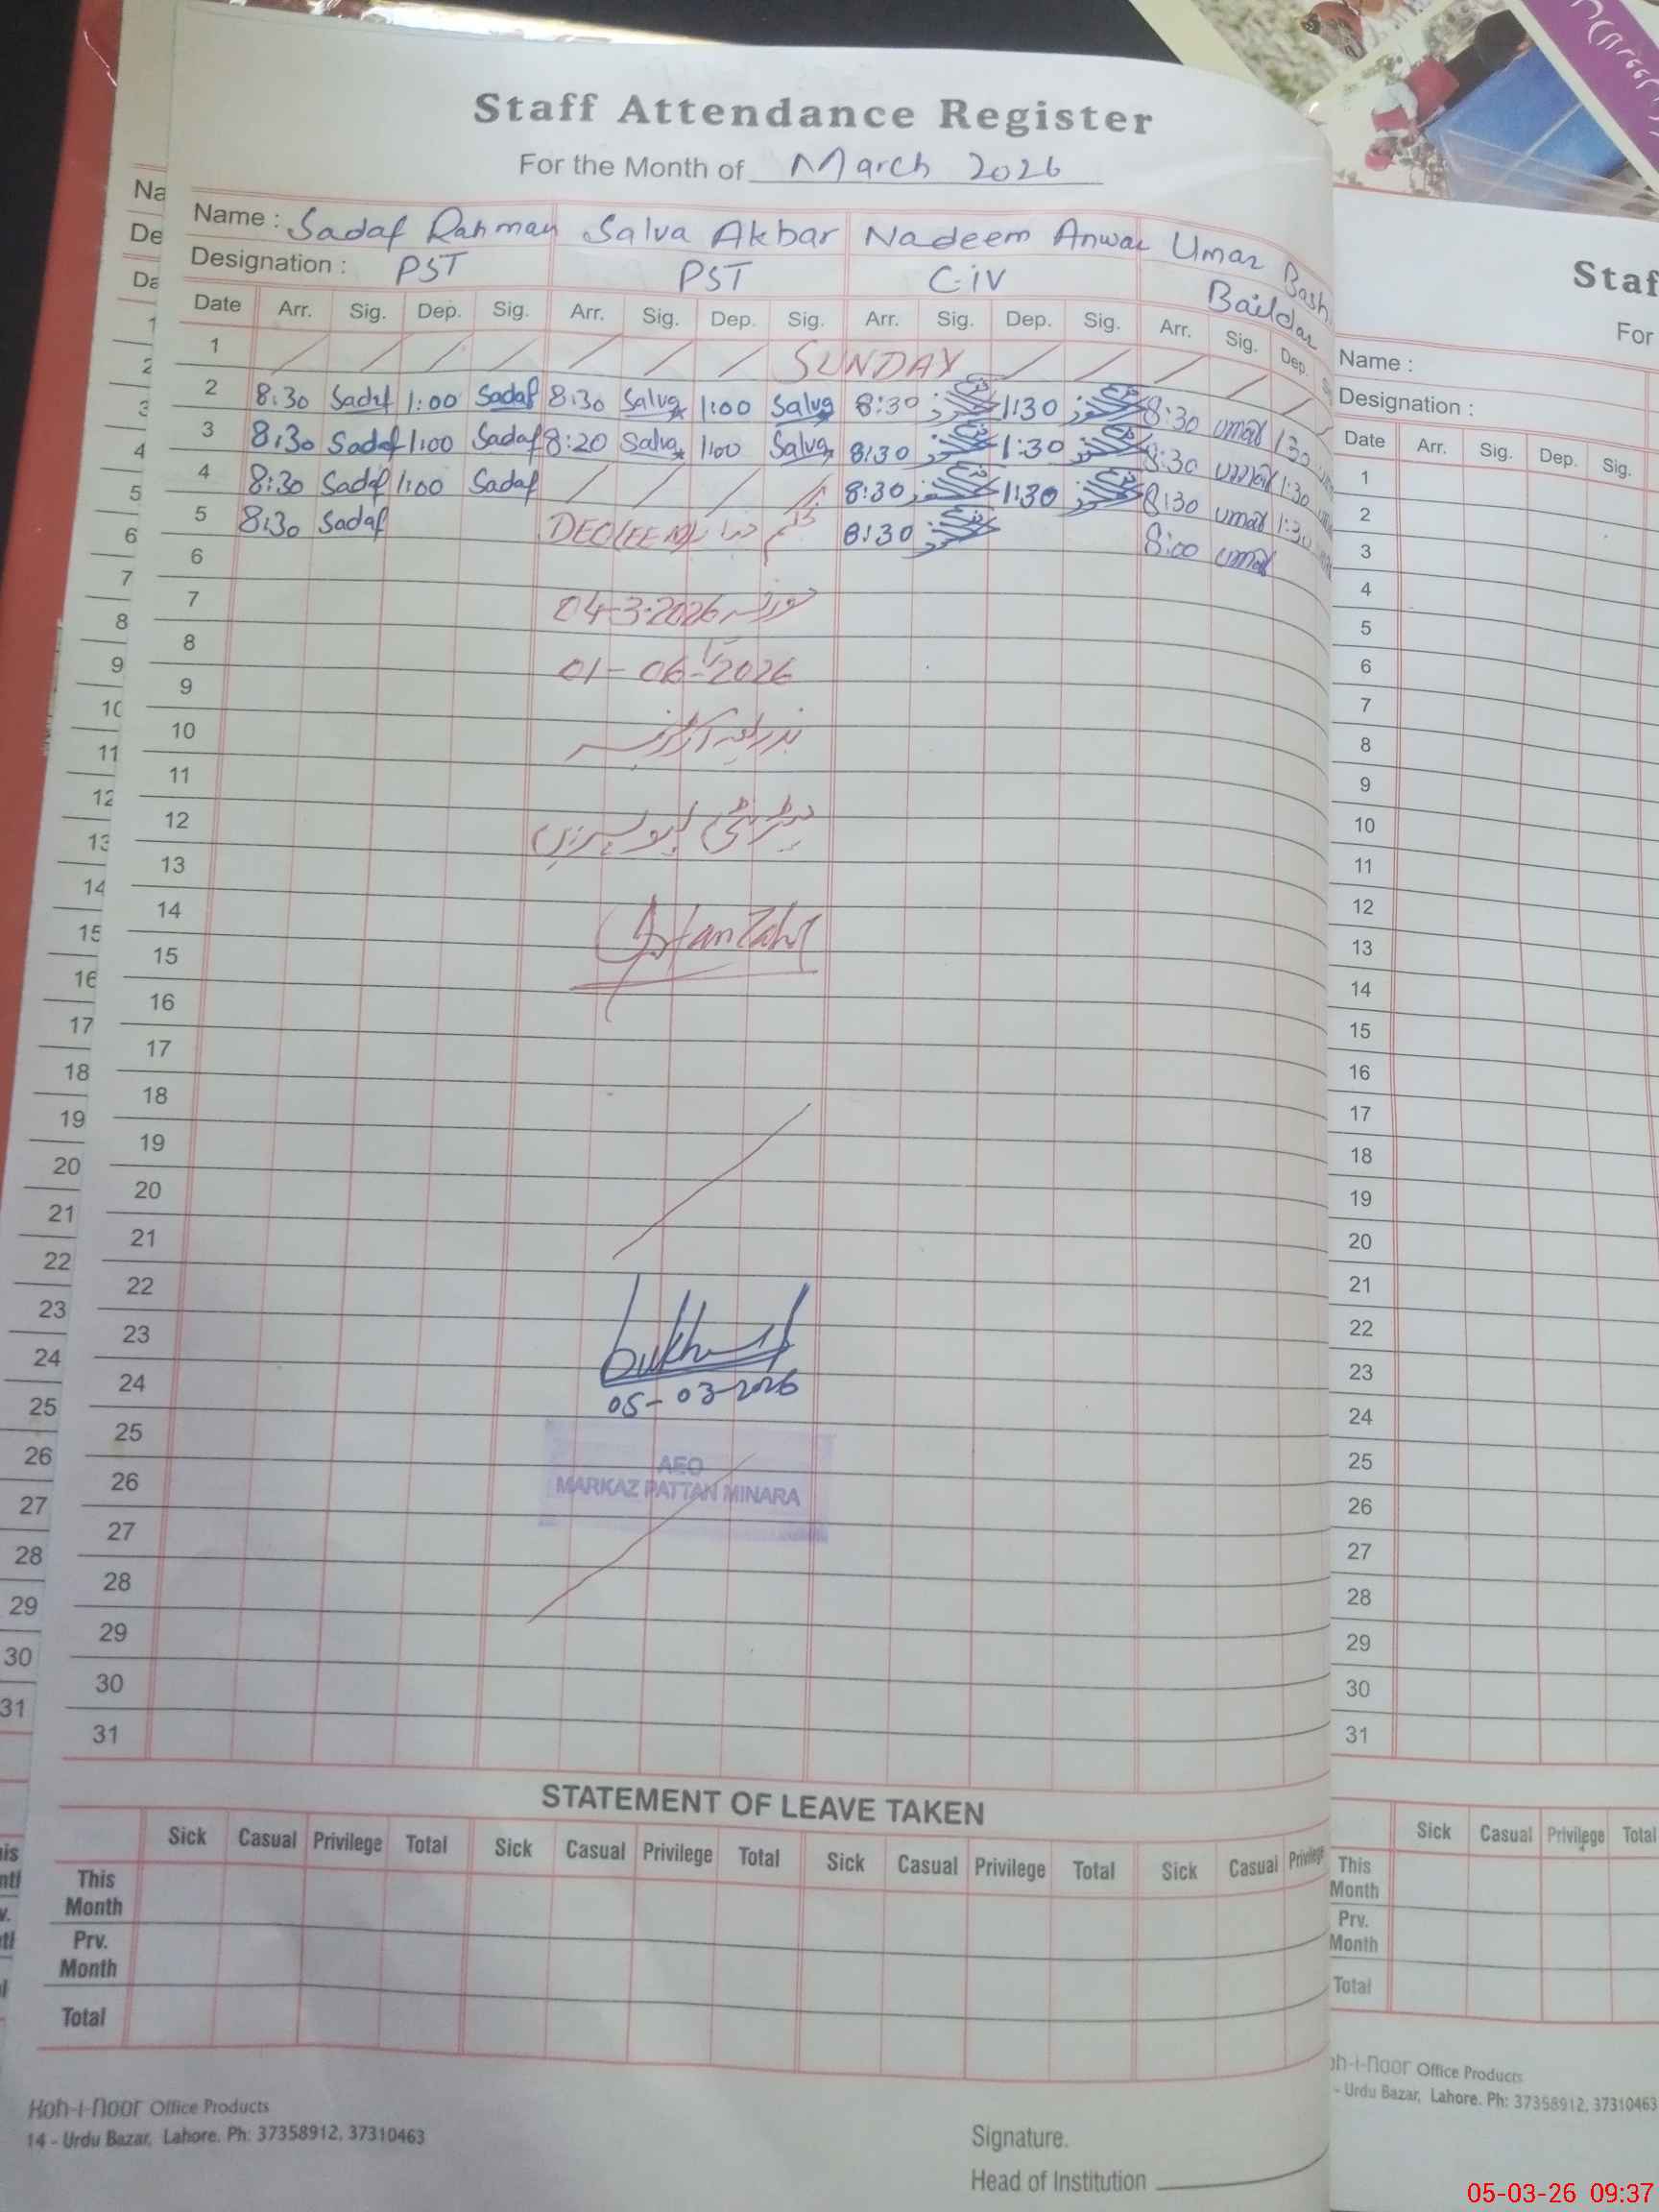 Staff Attendance Register
For the Month of March 2026
Name : Sadaf Rahman Salva Akbar Nadeem Anwar Umar Bash
Designation : PST PST C-iV Baildar
Date Arr. Sig. Dep. Sig. Arr. Sig. Dep. Sig. Arr. Sig. Dep. Sig. Arr. Sig. Dep.
1 SUNDAY
2 8:30 Sadaf 1:00 Sadaf 8:30 Salva 1:00 Salva 8:30 1:30 8:30 umar 1:30
3 8:30 Sadaf 1:00 Sadaf 8:20 Salva 1:00 Salva 8:30 1:30 8:30 umar 1:30
4 8:30 Sadaf 1:00 Sadaf 8:30 1:30 8:30 umar 1:30
5 8:30 Sadaf 8:30 8:00 umar
6
7 04-3-2026
8
9 01-06-2026
10
11
12
13
14
15
16
17
18
19
20
21
22
23
24 05-03-2026
25
AEO
26 MARKAZ PATTAN MINARA
27
28
29
30
31
STATEMENT OF LEAVE TAKEN
Sick Casual Privilege Total Sick Casual Privilege Total Sick Casual Privilege Total Sick Casual Privilege
This Month
Prv. Month
Total
Koh-i-noor Office Products
14 - Urdu Bazar, Lahore. Ph: 37358912, 37310463
Signature.
Head of Institution
Staf
For
Name :
Designation :
Date Arr. Sig. Dep. Sig.
1
2
3
4
5
6
7
8
9
10
11
12
13
14
15
16
17
18
19
20
21
22
23
24
25
26
27
28
29
30
31
Sick Casual Privilege Total
This Month
Prv. Month
Total
oh-i-noor Office Products
- Urdu Bazar, Lahore. Ph: 37358912, 37310463
05-03-26 09:37